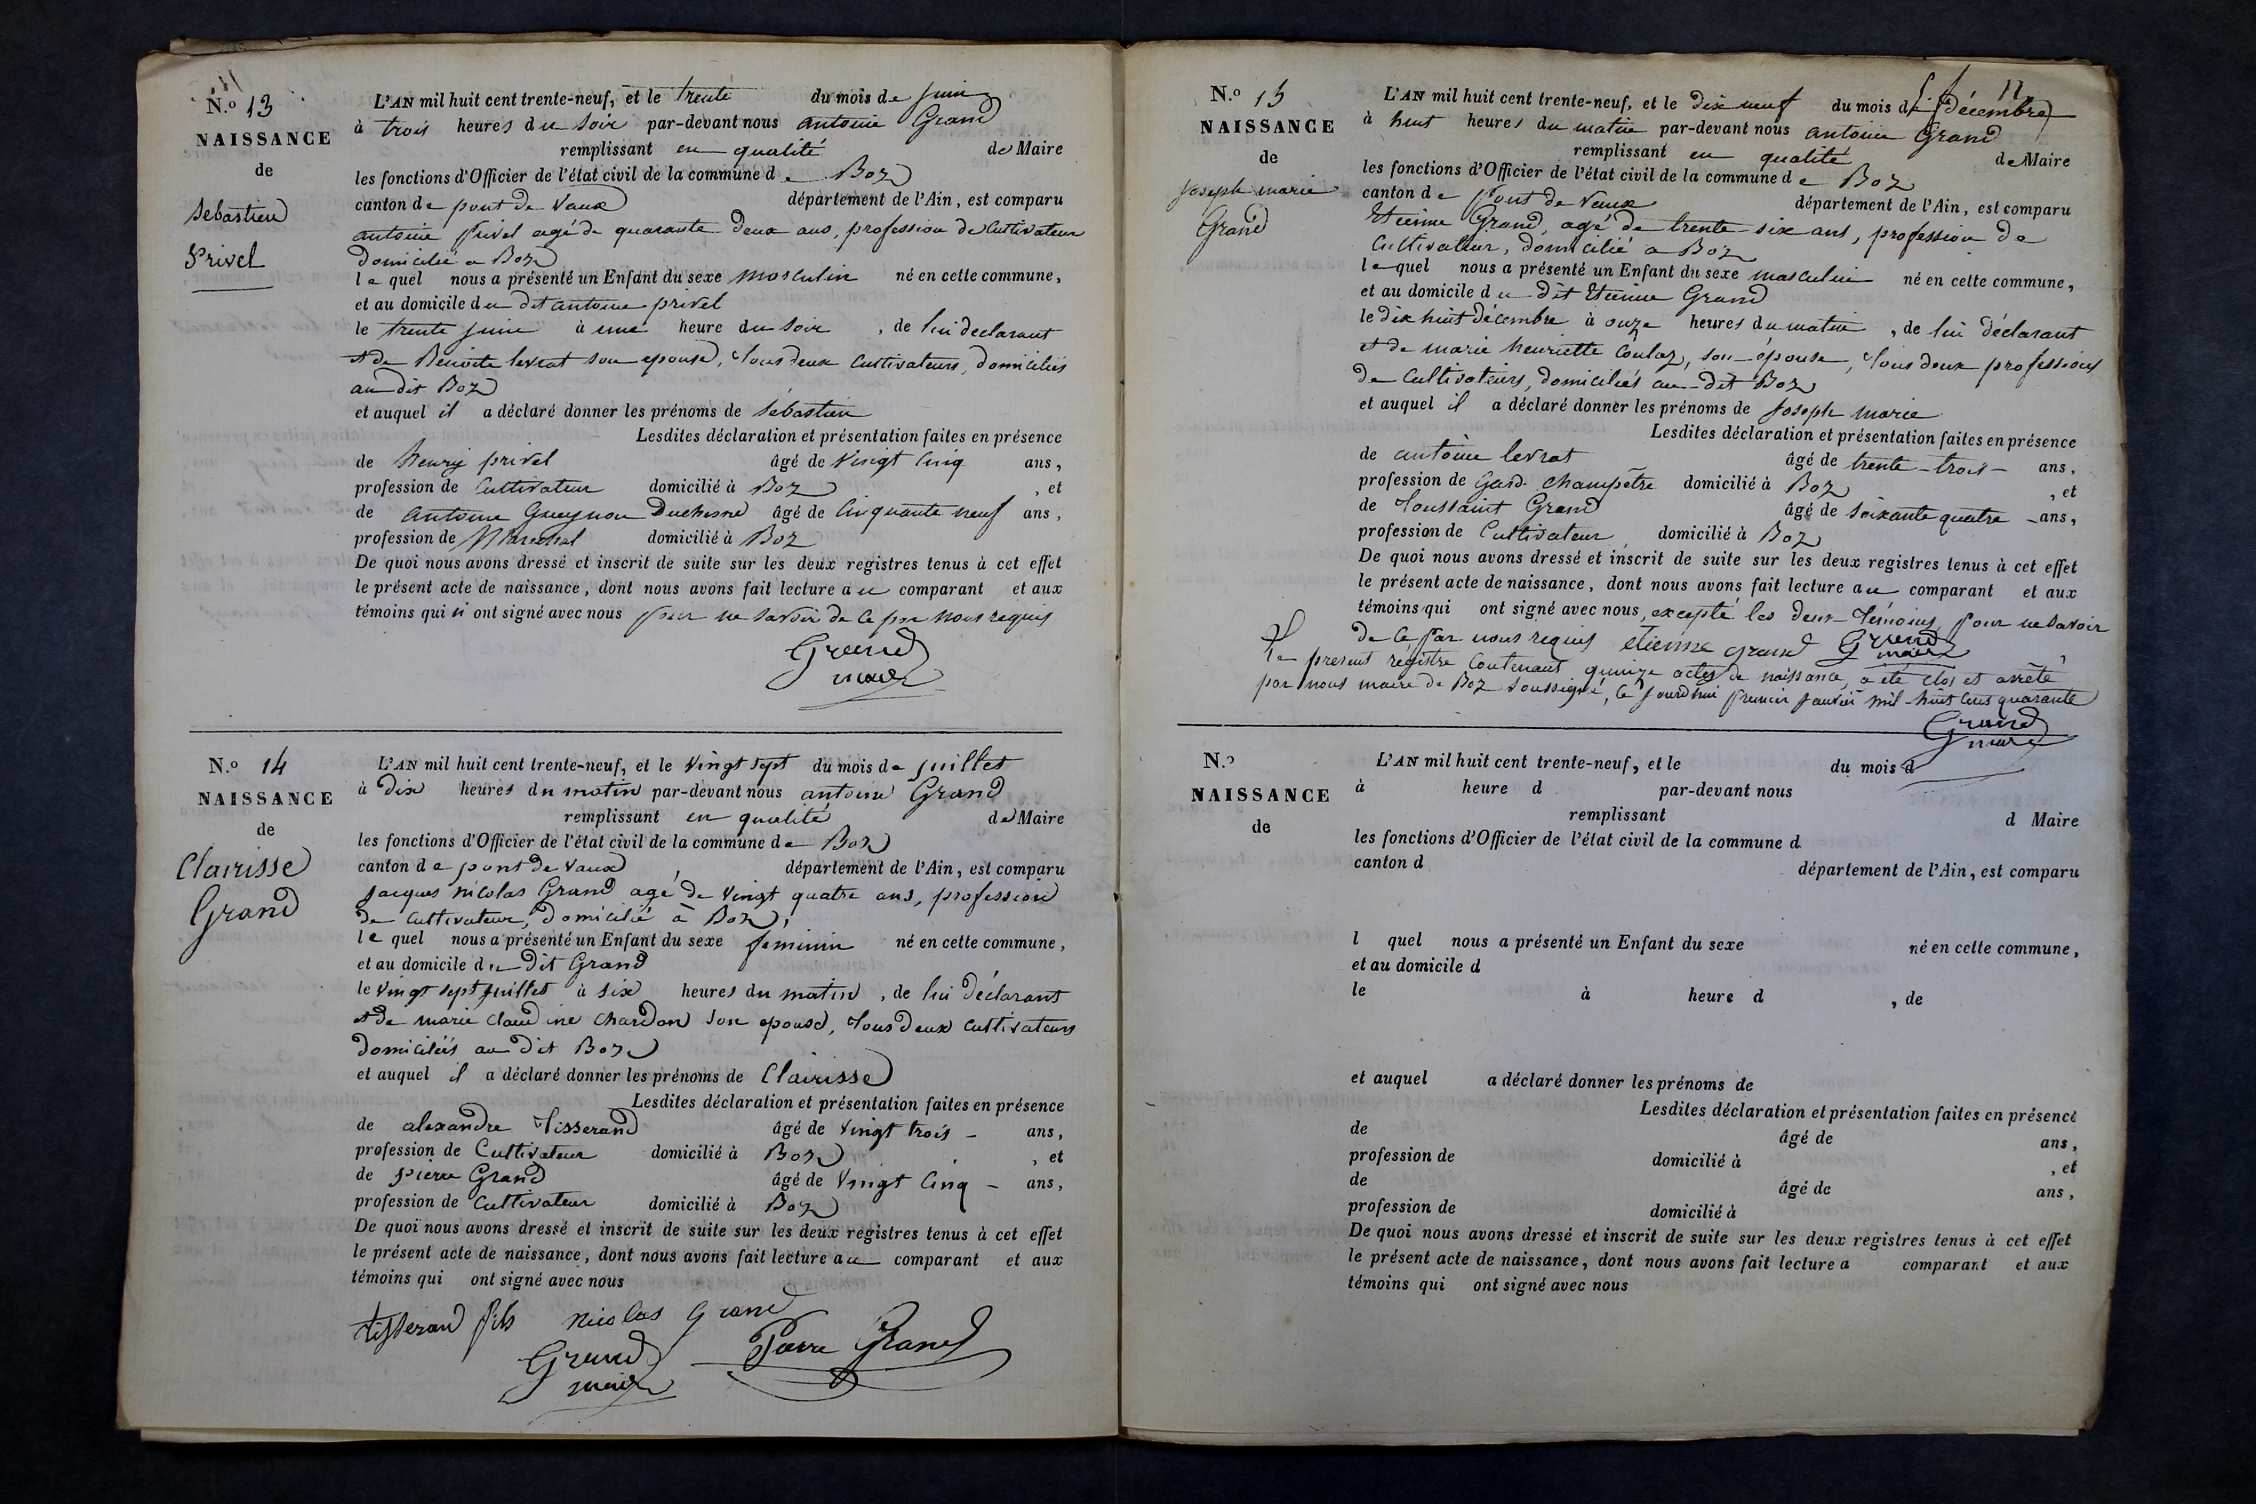 N.o 13
NAISSANCE
de
Sebastien
Privel
L'AN mil huit cent trente-neuf, et le trente du mois de juin
à trois heures du soir par-devant nous antoine Grand
remplissant en qualité de Maire
les fonctions d'Officier de l'état civil de la commune de Boz
canton de pont de Vaux département de l'Ain, est comparu
antoine privel agé de quarante deux ans, profession de Cultivateur
domicilié a Boz
lequel nous a présenté un Enfant du sexe masculin né en cette commune,
et au domicile du dit antoine privel
le trente juin à une heure du soir, de lui déclarant
et de Benoite levrat son epouse, tous deux cultivateurs, domiciliés
au dit Boz
et auquel il a déclaré donner les prénoms de sébastien
Lesdites déclaration et présentation faites en présence
de henry privel âgé de vingt cinq ans,
profession de Cultivateur domicilié à Boz, et
de antoine Gueynon Duchesne âgé de Cinquante neuf ans,
profession de Marechal domicilié à Boz
De quoi nous avons dressé et inscrit de suite sur les deux registres tenus à cet effet
le présent acte de naissance, dont nous avons fait lecture au comparant et aux
témoins qui n'ont signé avec nous pour ne savoir de ce par nous requis
Grand
maire
N.o 14
NAISSANCE
de
Clairisse
Grand
L'AN mil huit cent trente-neuf, et le vingt sept du mois de juillet
à dix heures du matin par-devant nous antoine Grand
remplissant en qualité de Maire
les fonctions d'Officier de l'état civil de la commune de Boz
canton de pont de Vaux, département de l'Ain, est comparu
jacques nicolas Grand agé de vingt quatre ans, profession
de cultivateur, domicilié à Boz,
lequel nous a présenté un Enfant du sexe feminin né en cette commune,
et au domicile du dit Grand
le vingt sept juillet à six heures du matin, de lui déclarant
et de marie claudine chardon son epouse, tous deux cultivateurs
domiciliés au dit Boz
et auquel il a déclaré donner les prénoms de Clairisse
Lesdites déclaration et présentation faites en présence
de alexandre tisserand âgé de vingt trois - ans,
profession de Cultivateur domicilié à Boz, et
de pierre Grand âgé de vingt cinq - ans,
profession de cultivateur domicilié à Boz
De quoi nous avons dressé et inscrit de suite sur les deux registres tenus à cet effet
le présent acte de naissance, dont nous avons fait lecture au comparant et aux
témoins qui ont signé avec nous
tisserand fils nicolas grand
Grand
maire
Pierre Grand
12
N.o 15
NAISSANCE
de
joseph marie
Grand
L'AN mil huit cent trente-neuf, et le dix neuf du mois de décembre
à huit heures du matin par-devant nous antoine Grand
remplissant en qualité de Maire
les fonctions d'Officier de l'état civil de la commune de Boz
canton de Pont de Vaux département de l'Ain, est comparu
Etienne Grand, agé de trente six ans, profession de
cultivateur, domicilié a Boz
lequel nous a présenté un Enfant du sexe masculin né en cette commune,
et au domicile du dit Etienne Grand
le dix huit décembre à onze heures du matin, de lui déclarant
et de marie henriette Coulaz, son épouse, tous deux professions
de cultivateurs, domiciliés au dit Boz
et auquel il a déclaré donner les prénoms de joseph marie
Lesdites déclaration et présentation faites en présence
de antoine levrat âgé de trente-trois- ans,
profession de Gard-champêtre domicilié à Boz, et
de Toussaint Grand âgé de soixante quatre - ans,
profession de Cultivateur domicilié à Boz
De quoi nous avons dressé et inscrit de suite sur les deux registres tenus à cet effet
le présent acte de naissance, dont nous avons fait lecture au comparant et aux
témoins qui ont signé avec nous, excepté les deux témoins pour ne savoir
de ce par nous requis etienne grand Grand maire
Le present régistre Contenant quinze actes de naissance, a été clos et arrêté
par nous maire de Boz soussigné, ce jourd'hui premier janvier mil-huit cent quarante
Grand
maire
N.o
NAISSANCE
de
L'AN mil huit cent trente-neuf, et le du mois d
à heure d par-devant nous
remplissant d Maire
les fonctions d'Officier de l'état civil de la commune d
canton d département de l'Ain, est comparu
l quel nous a présenté un Enfant du sexe né en cette commune,
et au domicile d
le à heure d , de
et auquel a déclaré donner les prénoms de
Lesdites déclaration et présentation faites en présence
de âgé de ans,
profession de domicilié à , et
de âgé de ans,
profession de domicilié à
De quoi nous avons dressé et inscrit de suite sur les deux registres tenus à cet effet
le présent acte de naissance, dont nous avons fait lecture a comparant et aux
témoins qui ont signé avec nous